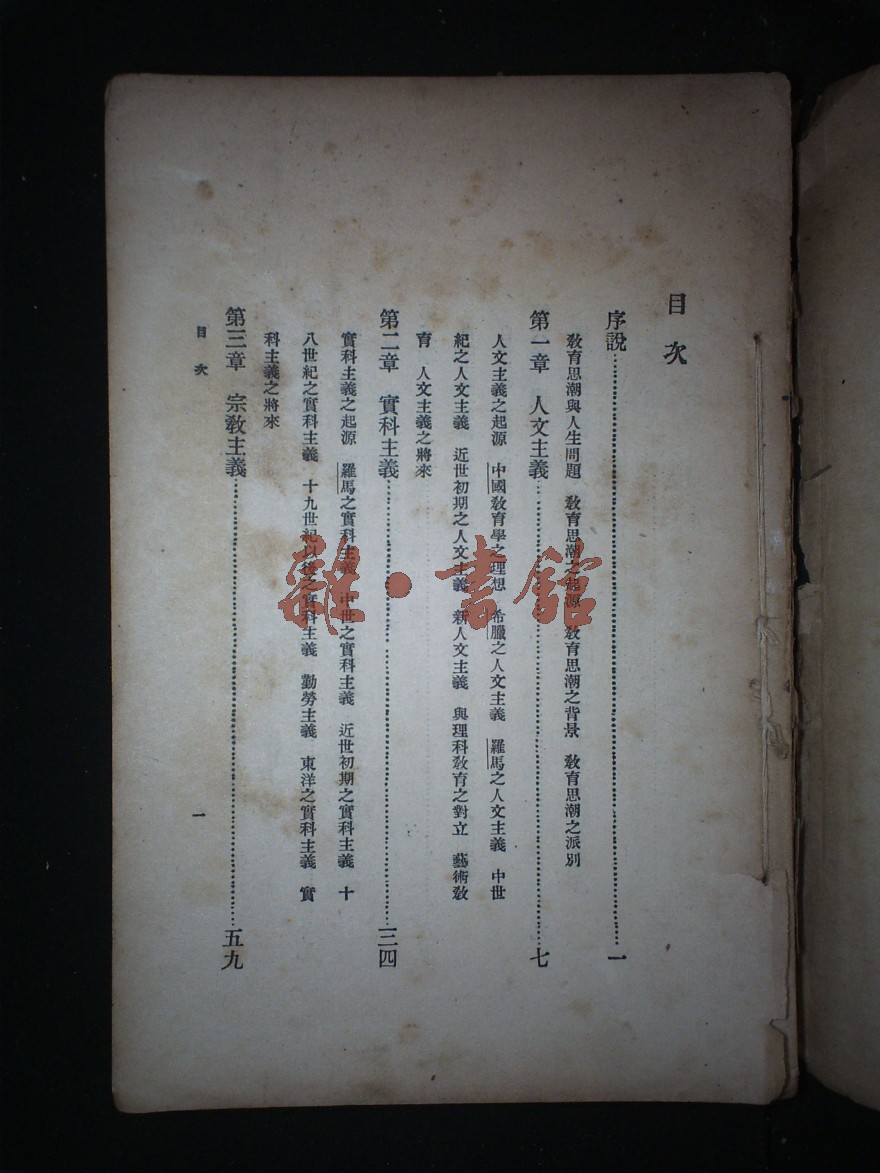 目次
序說……一
教育思潮與人生問題　教育思潮之起源　教育思潮之背景　教育思潮之派別
第一章　人文主義……七
人文主義之起源　中國教育學之理想　希臘之人文主義　羅馬之人文主義　中世
紀之人文主義　近世初期之人文主義　新人文主義　與理科教育之對立　藝術教
育　人文主義之將來
第二章　實科主義……三四
實科主義之起源　羅馬之實科主義　中世之實科主義　近世初期之實科主義　十
八世紀之實科主義　十九世紀以後之實科主義　勤勞主義　東洋之實科主義　實
科主義之將來
第三章　宗教主義……五九
目次　一
雜·書館